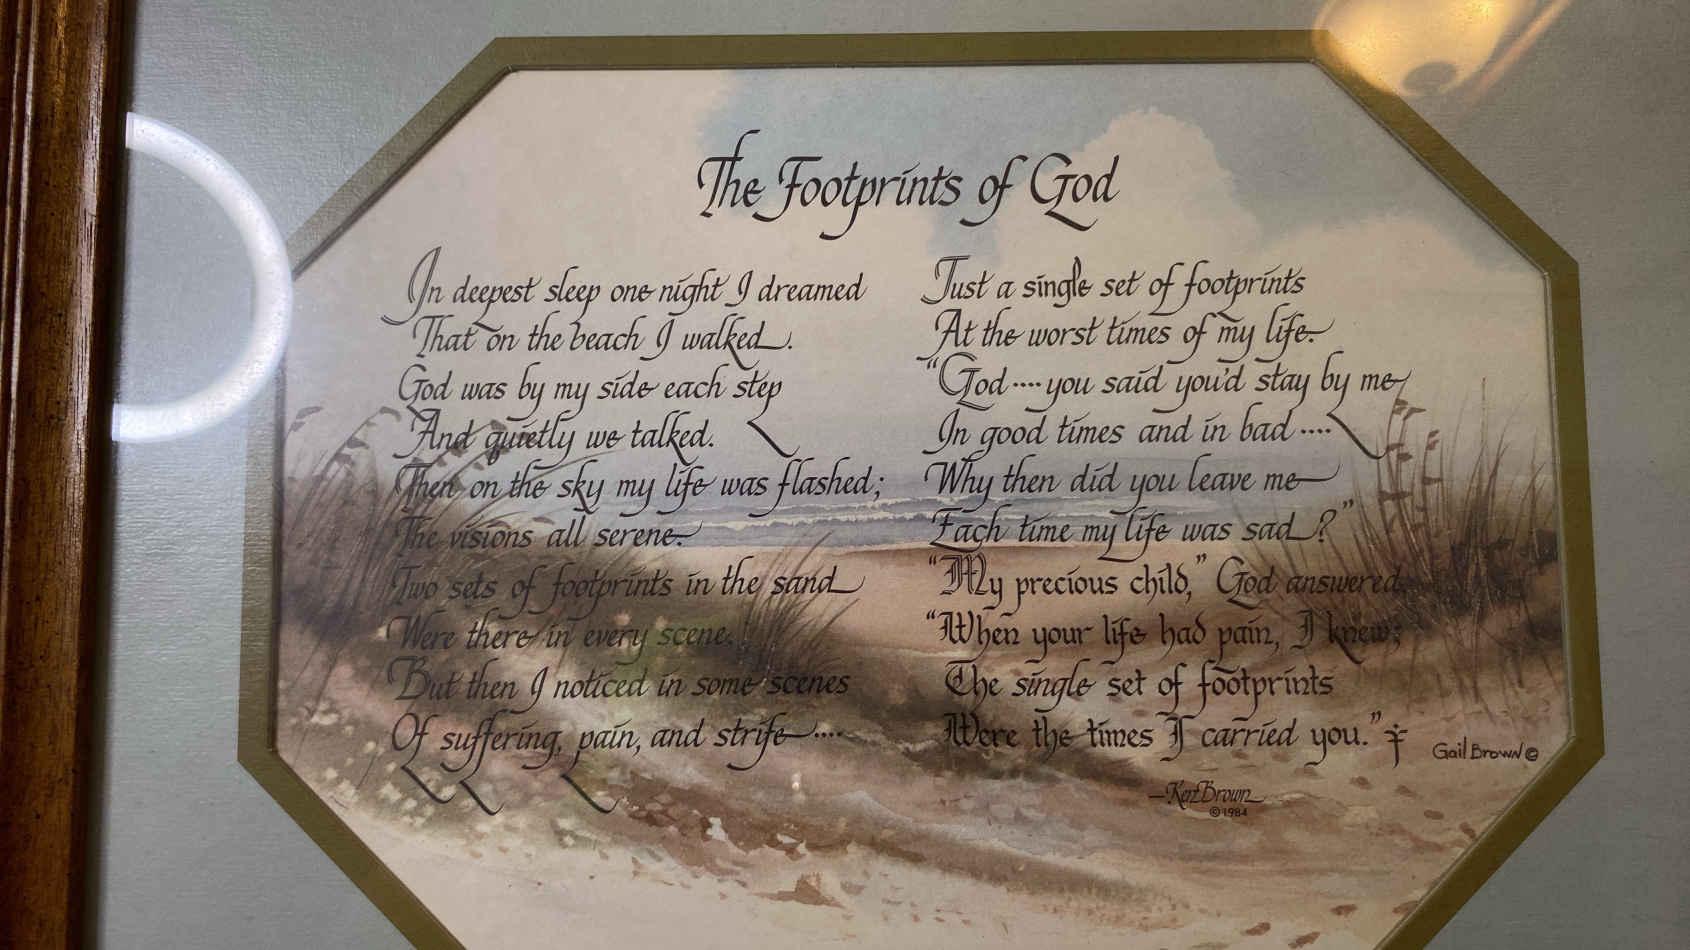 The Footprints of God
In deepest sleep one night I dreamed
That on the beach I walked.
God was by my side each step
And quietly we talked.
Then on the sky my life was flashed;
The visions all serene.
Two sets of footprints in the sand
Were there in every scene.
But then I noticed in some scenes
Of suffering, pain, and strife....
Just a single set of footprints
At the worst times of my life.
“God....you said you'd stay by me
In good times and in bad....
Why then did you leave me
Each time my life was sad?”
“My precious child,” God answered,
“When your life had pain, I knew;
The single set of footprints
Were the times I carried you.”
Gail Brown ©
—Ken Brown
© 1984